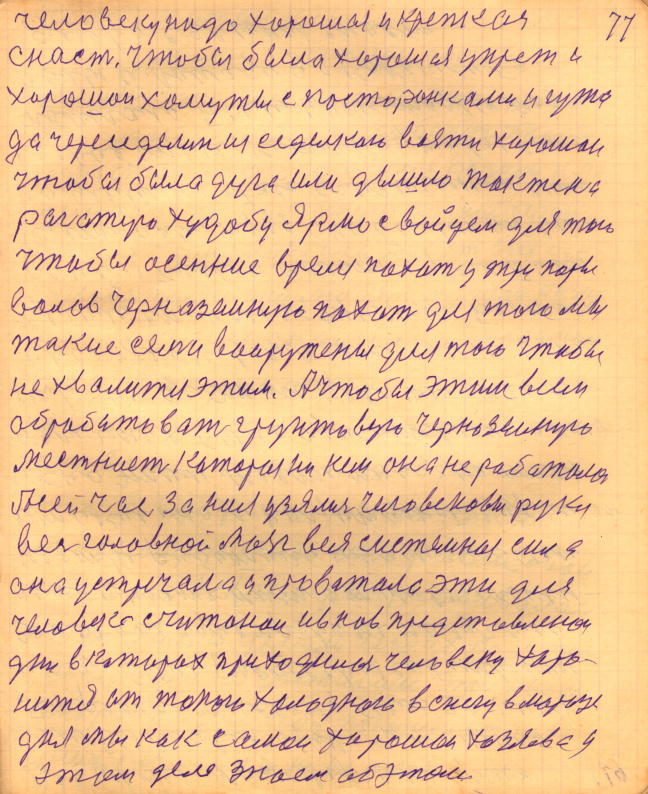 человеку надо хорошая и крепкая 77
снаст. Чтобы была хорошая упреж и
хорошои хомуты с посторонками и гужа
да череседелни и седелкою взяти хорошои
чтобы была дуга или дышло также на
рагатую худобу Ярмо с войцем для того
чтобы осенние время пахат у три пары
волов черназемную пахат для того мы
такие сами вооружены для того чтобы
не хвалится этим. А чтобы этим всем
обработоват грунтовую черноземную
местност которая ни кем она не работолос
сей час за ния узялися человековы руки
вся головной мозг вся системная сила
она устричала и проважала эти для
человека считонои и внов представленои
дни в которох приходился человеку харо-
нится от токого холодного в снегу в морозе
дня мы как самои хорошои хозяева у
этом деле знаем об этом